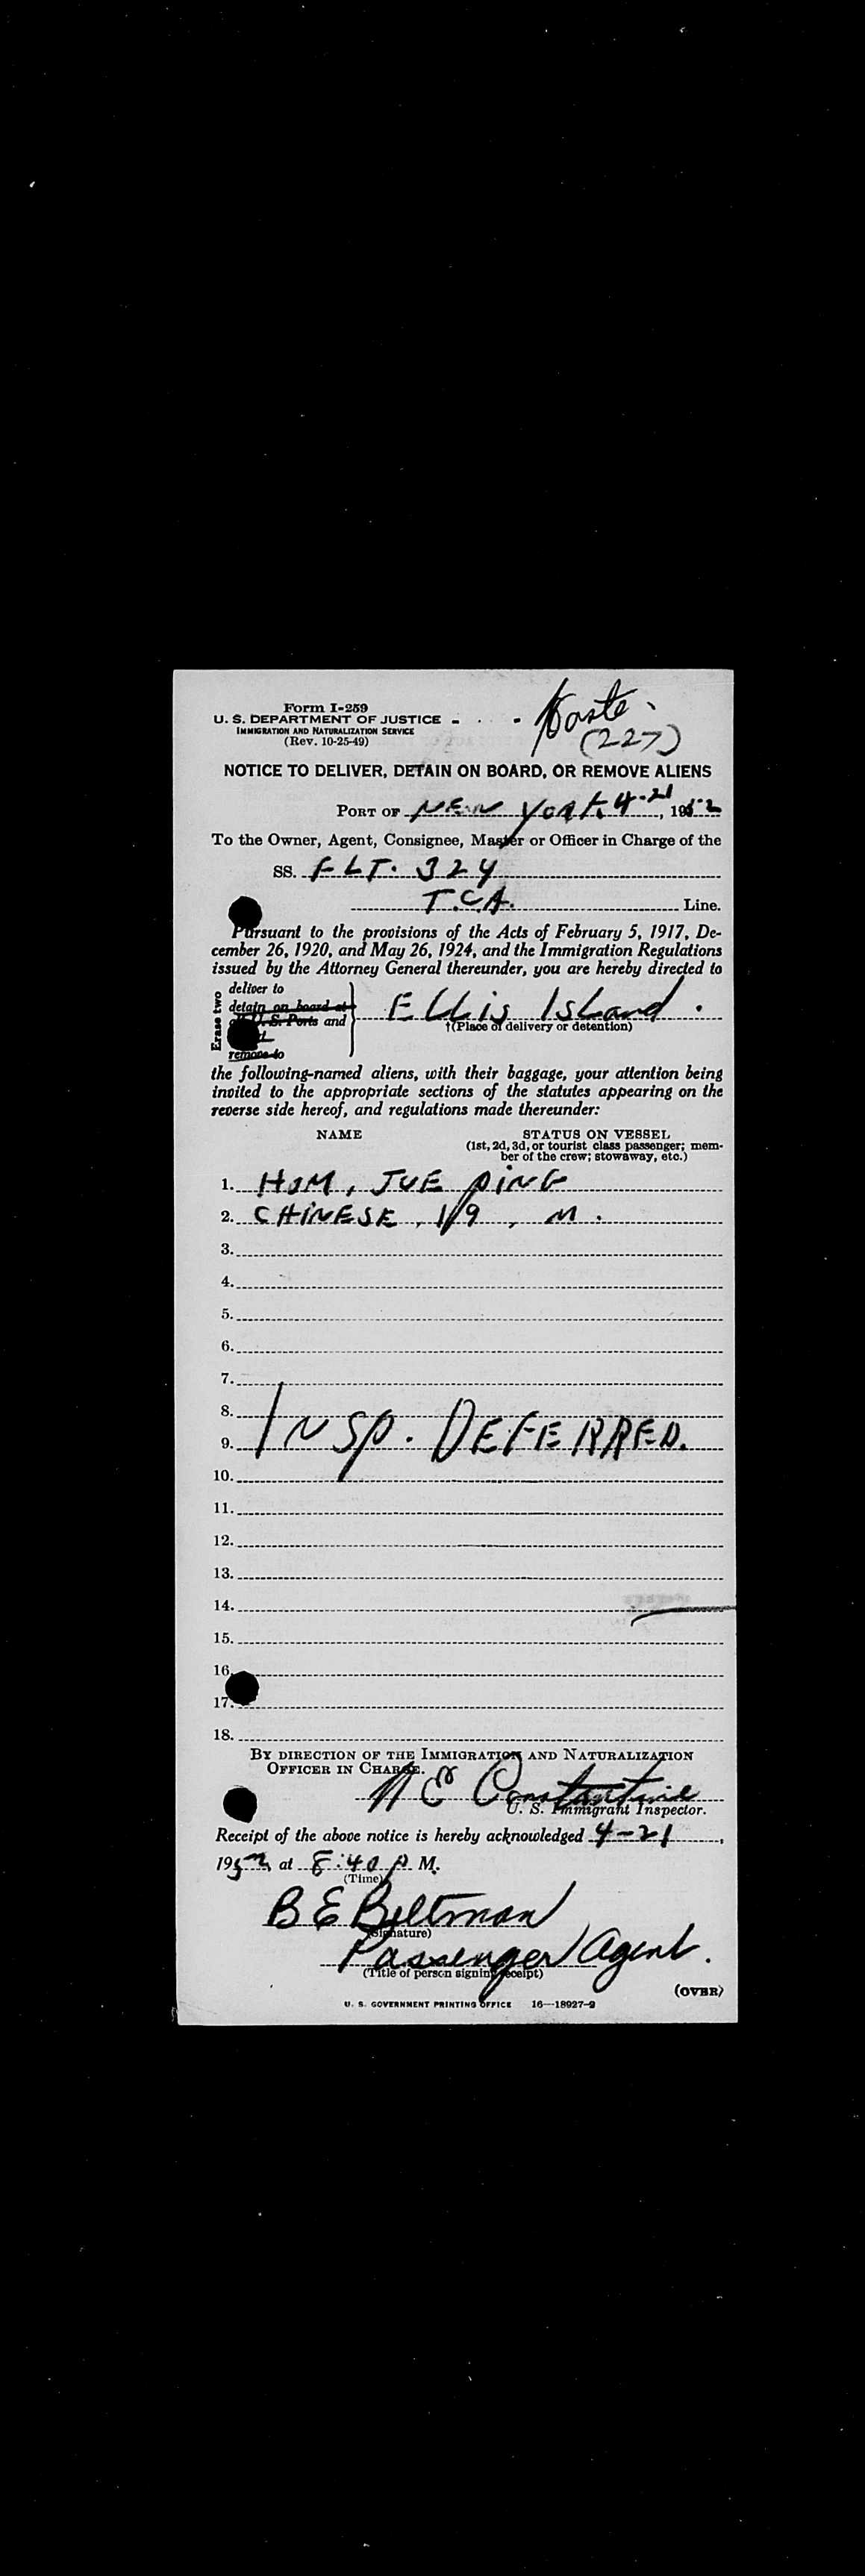 Form I-259
U. S. DEPARTMENT OF JUSTICE
IMMIGRATION AND NATURALIZATION SERVICE
(Rev. 10-25-49)
(227)
NOTICE TO DELIVER, DETAIN ON BOARD, OR REMOVE ALIENS
PORT OF NEW YORK 4-21, 1952
To the Owner, Agent, Consignee, Master or Officer in Charge of the
SS. FLT. 324
T.C.A. Line.
Pursuant to the provisions of the Acts of February 5, 1917, De-
cember 26, 1920, and May 26, 1924, and the Immigration Regulations
issued by the Attorney General thereunder, you are hereby directed to
Erase two
deliver to
detain on board at
U. S. Ports and
remove to
Ellis Island.
†(Place of delivery or detention)
the following-named aliens, with their baggage, your attention being
invited to the appropriate sections of the statutes appearing on the
reverse side hereof, and regulations made thereunder:
NAME STATUS ON VESSEL
(1st, 2d, 3d, or tourist class passenger; mem-
ber of the crew; stowaway, etc.)
1. HOM, JUE PING
2. CHINESE, 19, M.
3.
4.
5.
6.
7.
8.
9. INSP. DEFERRED.
10.
11.
12.
13.
14.
15.
16.
17.
18.
BY DIRECTION OF THE IMMIGRATION AND NATURALIZATION
OFFICER IN CHARGE.
N E Constantine
U. S. Immigrant Inspector.
Receipt of the above notice is hereby acknowledged 4-21,
1952 at 8:40 P M.
(Time)
B E Beltman
(Signature)
Passenger Agent.
(Title of person signing receipt)
(OVER)
U. S. GOVERNMENT PRINTING OFFICE 16—18927-2